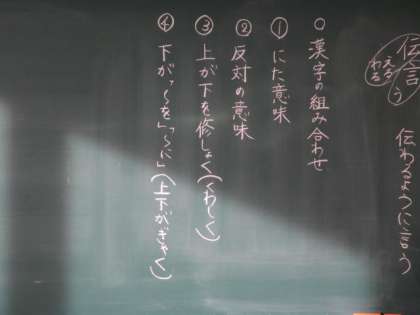 伝言
える
わる
う
伝わるように言う
○漢字の組み合わせ
①にた意味
②反対の意味
③上が下を修しょく(くわしく)
④下が「〜を」「〜に」(上下がぎゃく)